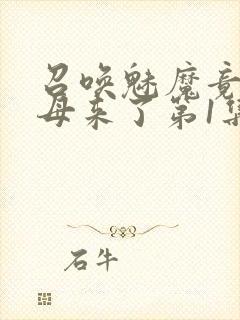 召唤魅魔竟
母来了第1集
石牛